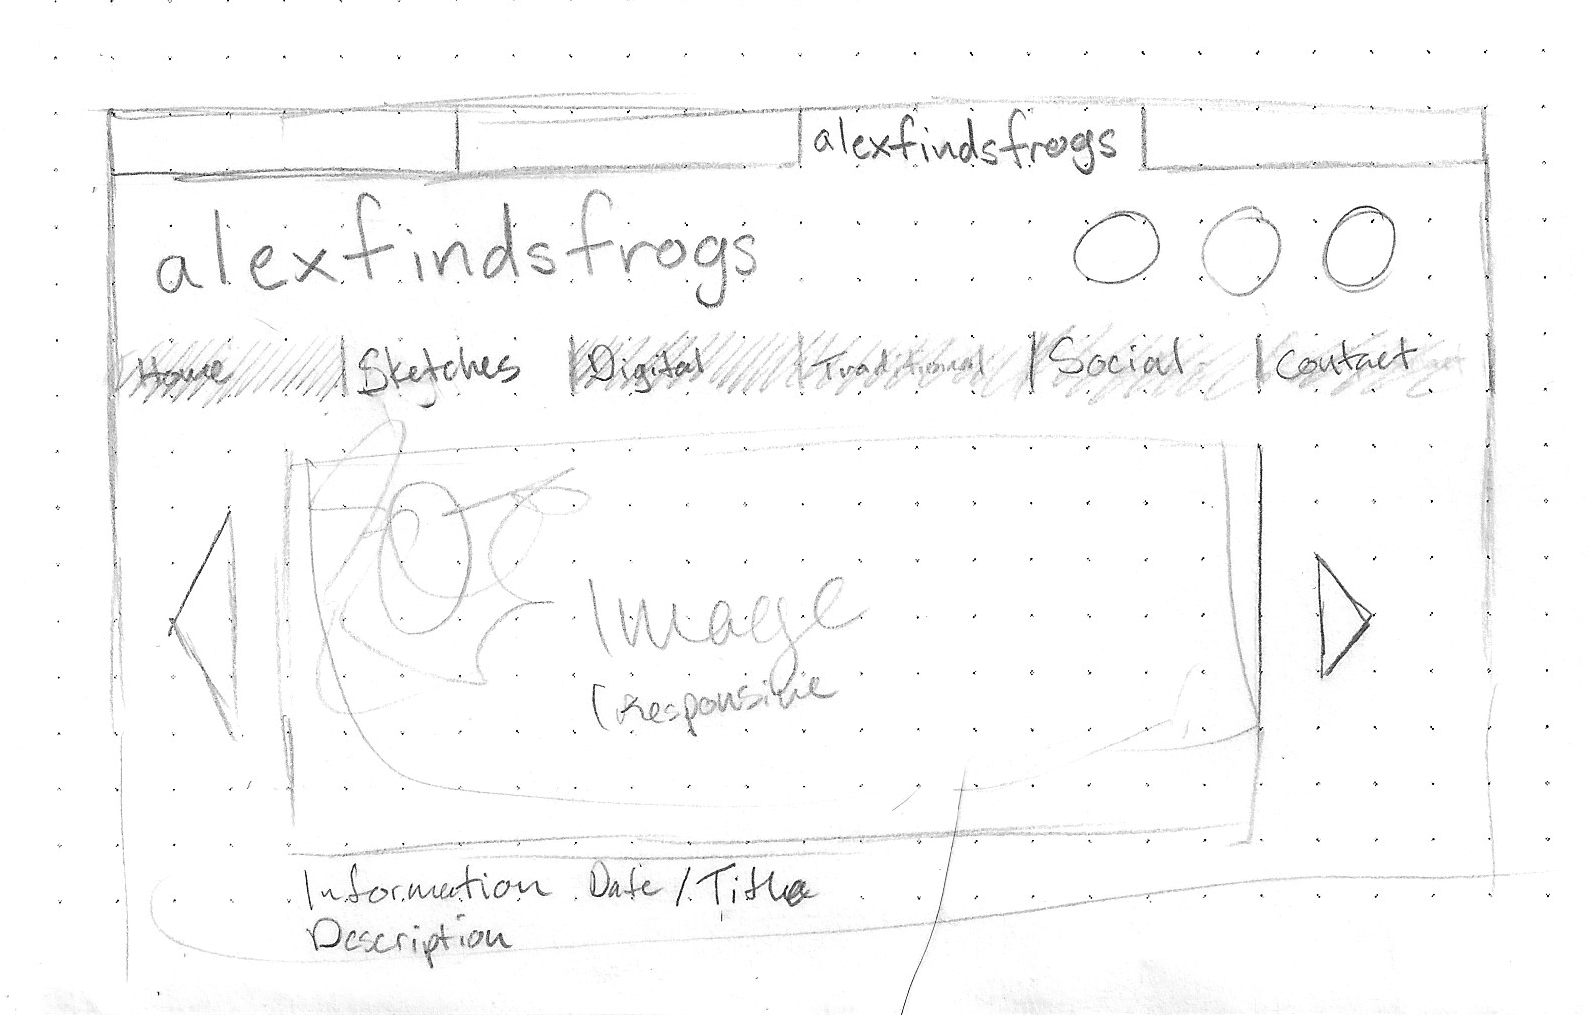 alexfindsfrogs
alexfindsfrogs
Home Sketches Digital Traditional Social Contact
Image
(Responsive
Information Date / Title
Description